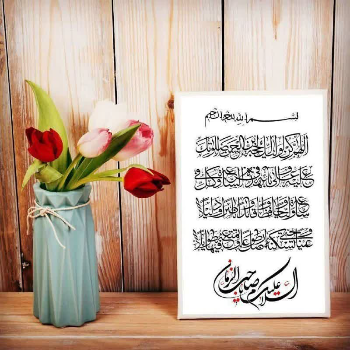 بسم الله الرحمن الرحیم
اللهم کن لولیک الحجة بن الحسن صلواتک
علیه و علی آبائه فی هذه الساعة و فی کل
ساعة ولیا و حافظا و قائدا و ناصرا و دلیلا
و عینا حتی تسکنه ارضک طوعا و تمتعه فیها طویلا
السلام علیک یا صاحب الزمان